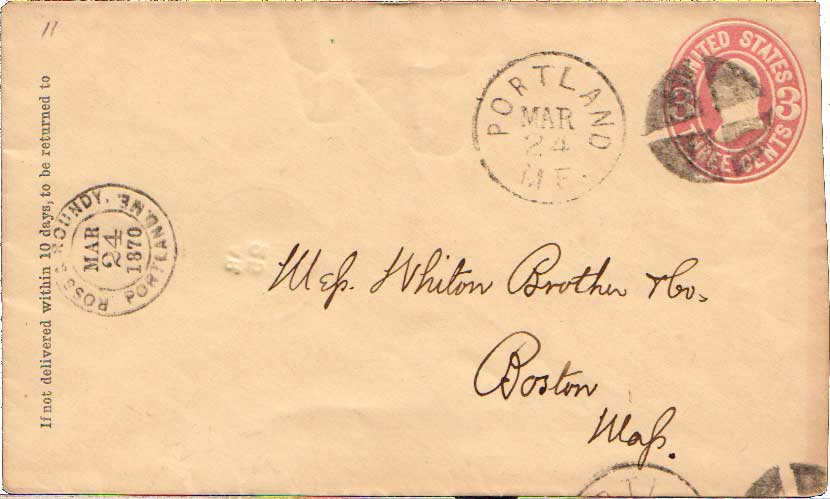 11
If not delivered within 10 days, to be returned to
ROSS & ROUNDY,
MAR
24
1870
PORTLAND, ME.
PORTLAND
MAR
24
ME.
UNITED STATES
3 3
THREE CENTS
Mess. Whiton Brother & Co.
Boston
Mass.